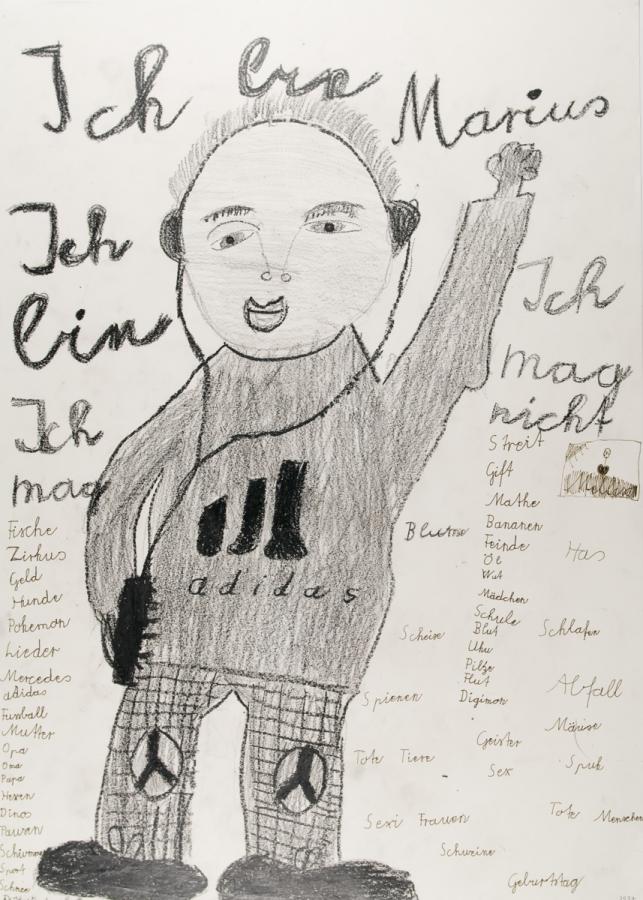 Ich bin Marius
Ich
bin
Ich
mag
Fische
Zirkus
Geld
Hunde
Pokemon
Lieder
Mercedes
adidas
Fussball
Mutter
Opa
Oma
Papa
Hexen
Dinos
Pausen
Sport
Schnee
adidas
Ich
mag
nicht
Streit
Gift
Mathe
Bananen
Feinde
Öl
Wut
Mädchen
Schule
Blut
Uhu
Pilze
Flut
Digimon
Blume
Scheise
Spienen
Tote Tiere
Geister
Sex
Sexi Frauen
Schweine
Geburtstag
Has
Schlafen
Abfall
Mäuse
Spuk
Tote Menschen